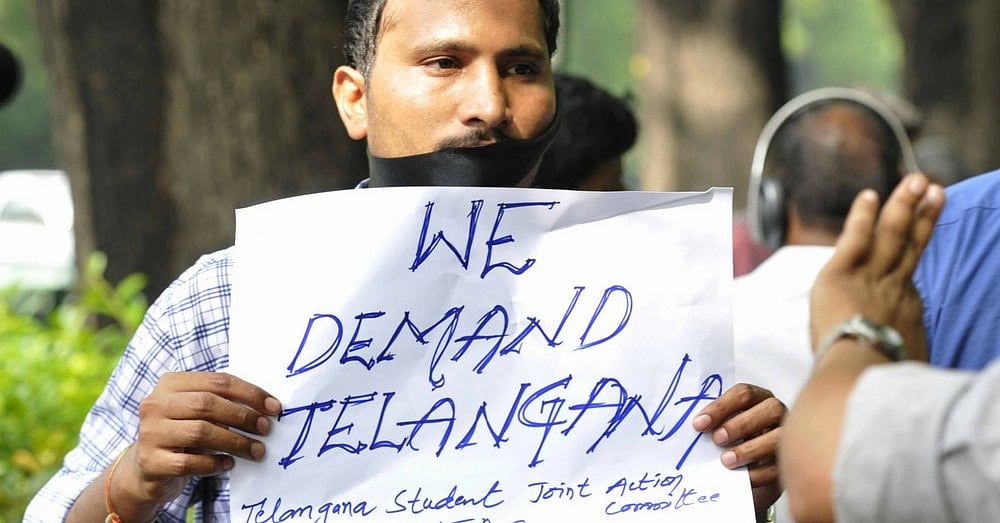 WE
DEMAND
TELANGANA
Telangana Student Joint Action
Committee